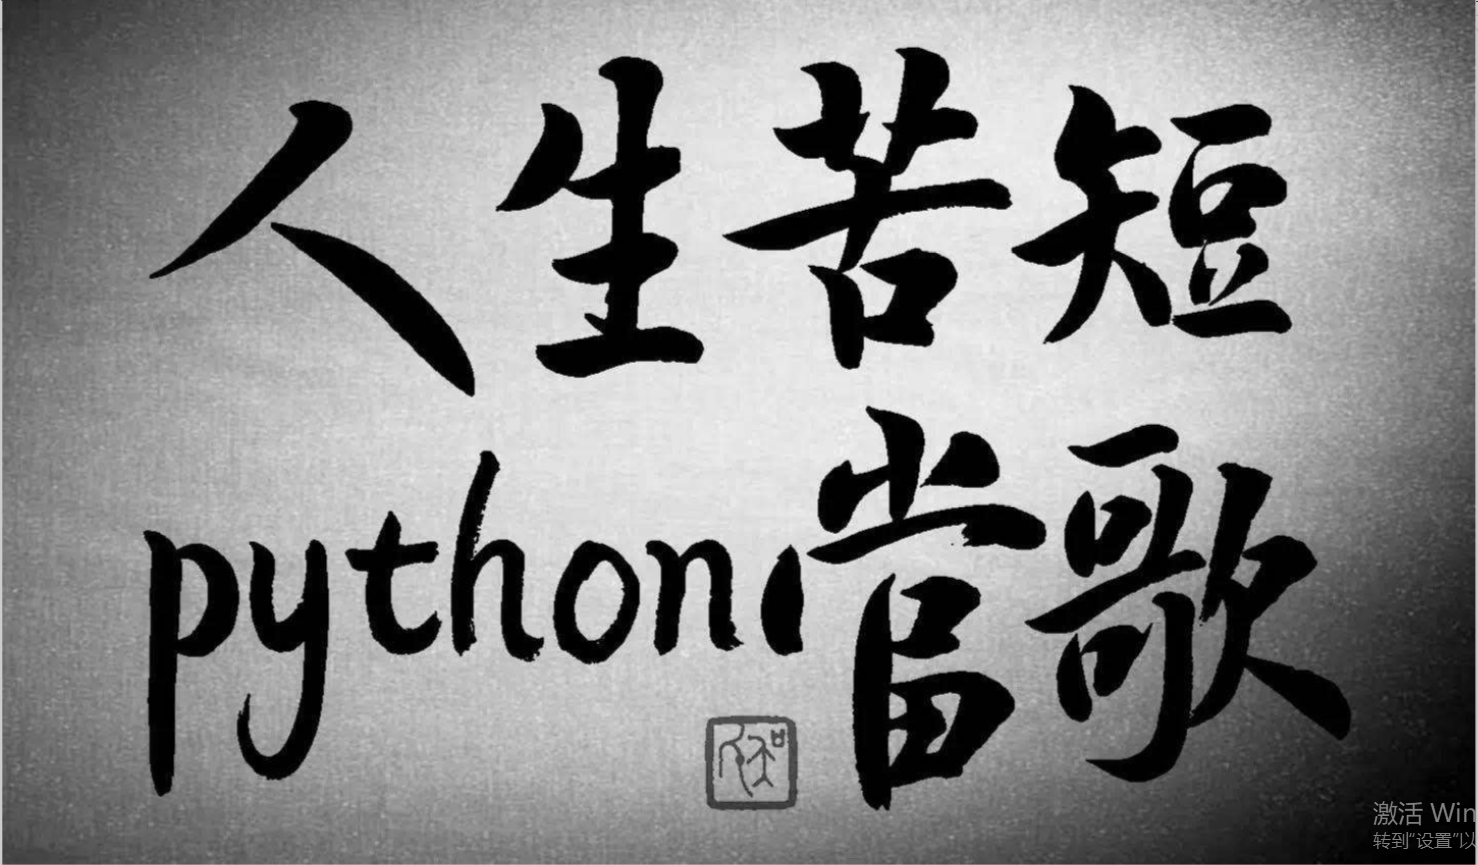 人生苦短
python當歌
激活 Win
转到"设置"以